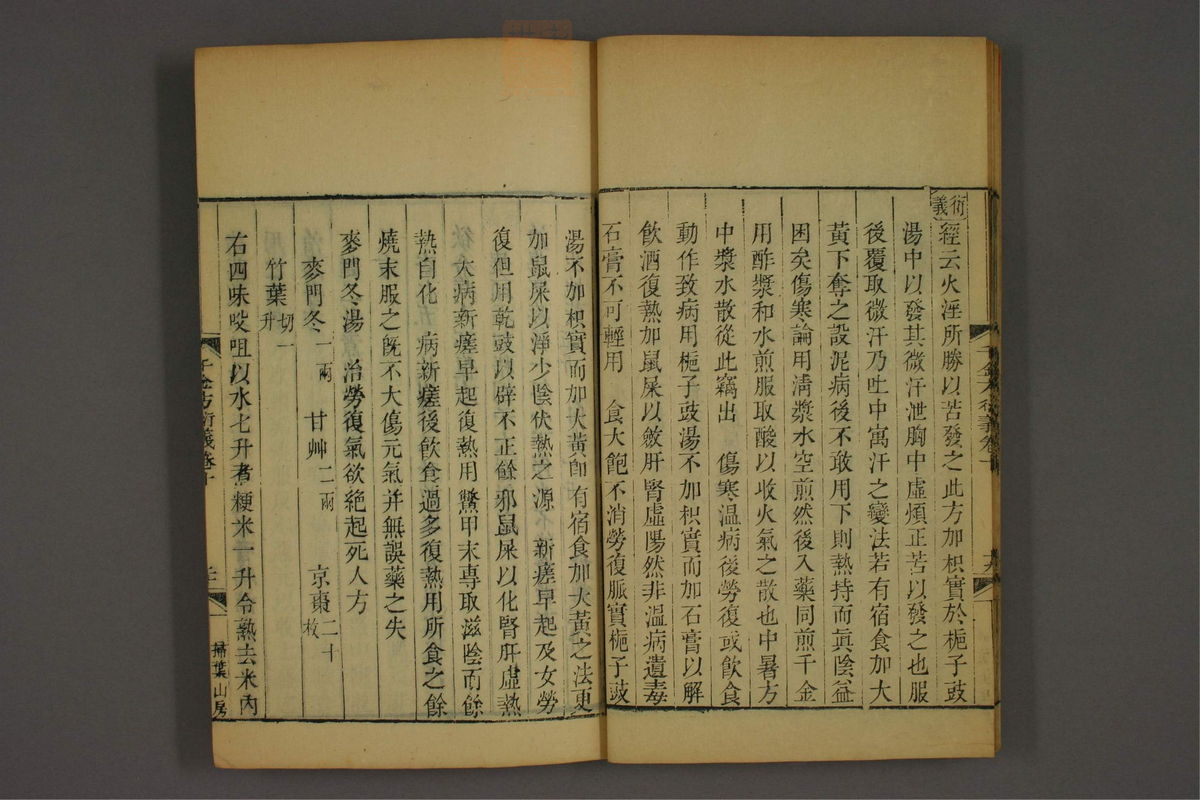 衍義
經云火淫所勝以苦發之此方加枳實於梔子豉
湯中以發其微汗泄胸中虛煩正苦以發之也服
後覆取微汗乃吐中寓汗之變法若有宿食加大
黃下奪之設泥病後不敢用下則熱持而眞陰益
困矣傷寒論用淸漿水空煎然後入藥同煎千金
用酢漿和水煎服取酸以收火氣之散也中暑方
中漿水散從此竊出 傷寒溫病後勞復或飲食
動作致病用梔子豉湯不加枳實而加石膏以解
飲酒復熱加鼠屎以斂肝腎虛陽然非溫病遺毒
石膏不可輕用 食大飽不消勞復脈實梔子豉
湯不加枳實而加大黃卽有宿食加大黃之法更
加鼠屎以淨少陰伏熱之源 新瘥早起及女勞
復但用乾豉以辟不正餘邪鼠屎以化腎肝虛熱
大病新瘥早起復熱用鱉甲末專取滋陰而餘
熱自化 病新瘥後飲食過多復熱用所食之餘
燒末服之旣不大傷元氣幷無誤藥之失
麥門冬湯 治勞復氣欲絕起死人方
麥門冬一兩 甘艸二兩 京棗二十枚
竹葉切一升
右四味㕮咀以水七升煮粳米一升令熟去米內
千金方衍義卷十
掃葉山房